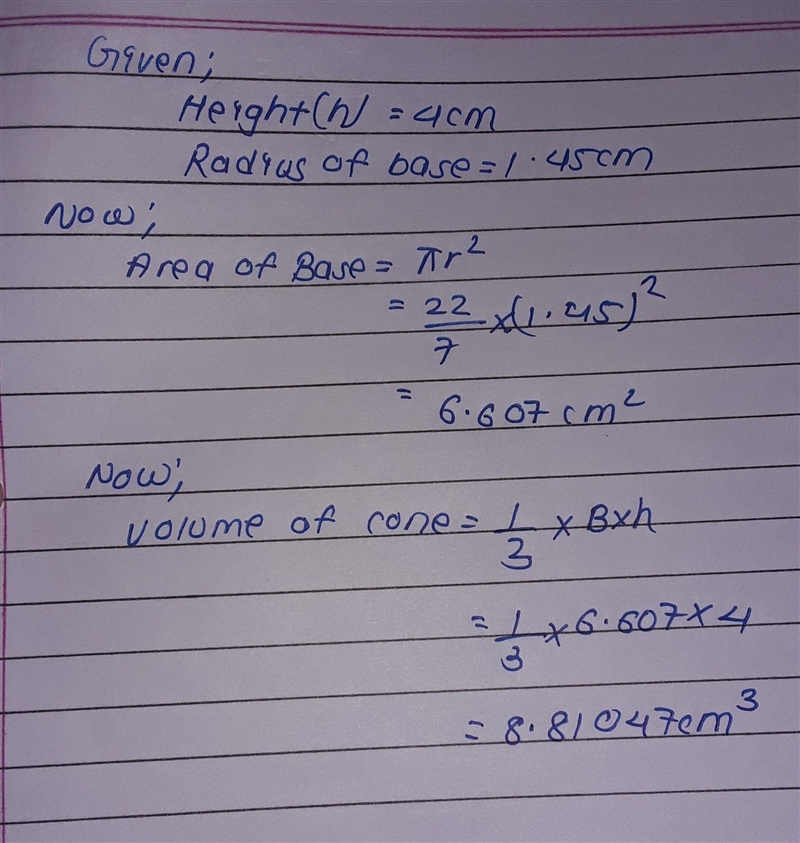 Given;
Height(h) = 4cm
Radius of base = 1.45cm
Now;
Area of Base = πr²
= 22/7 × (1.45)²
= 6.607 cm²
Now;
Volume of cone = 1/3 × B×h
= 1/3 × 6.607 × 4
= 8.81047cm³